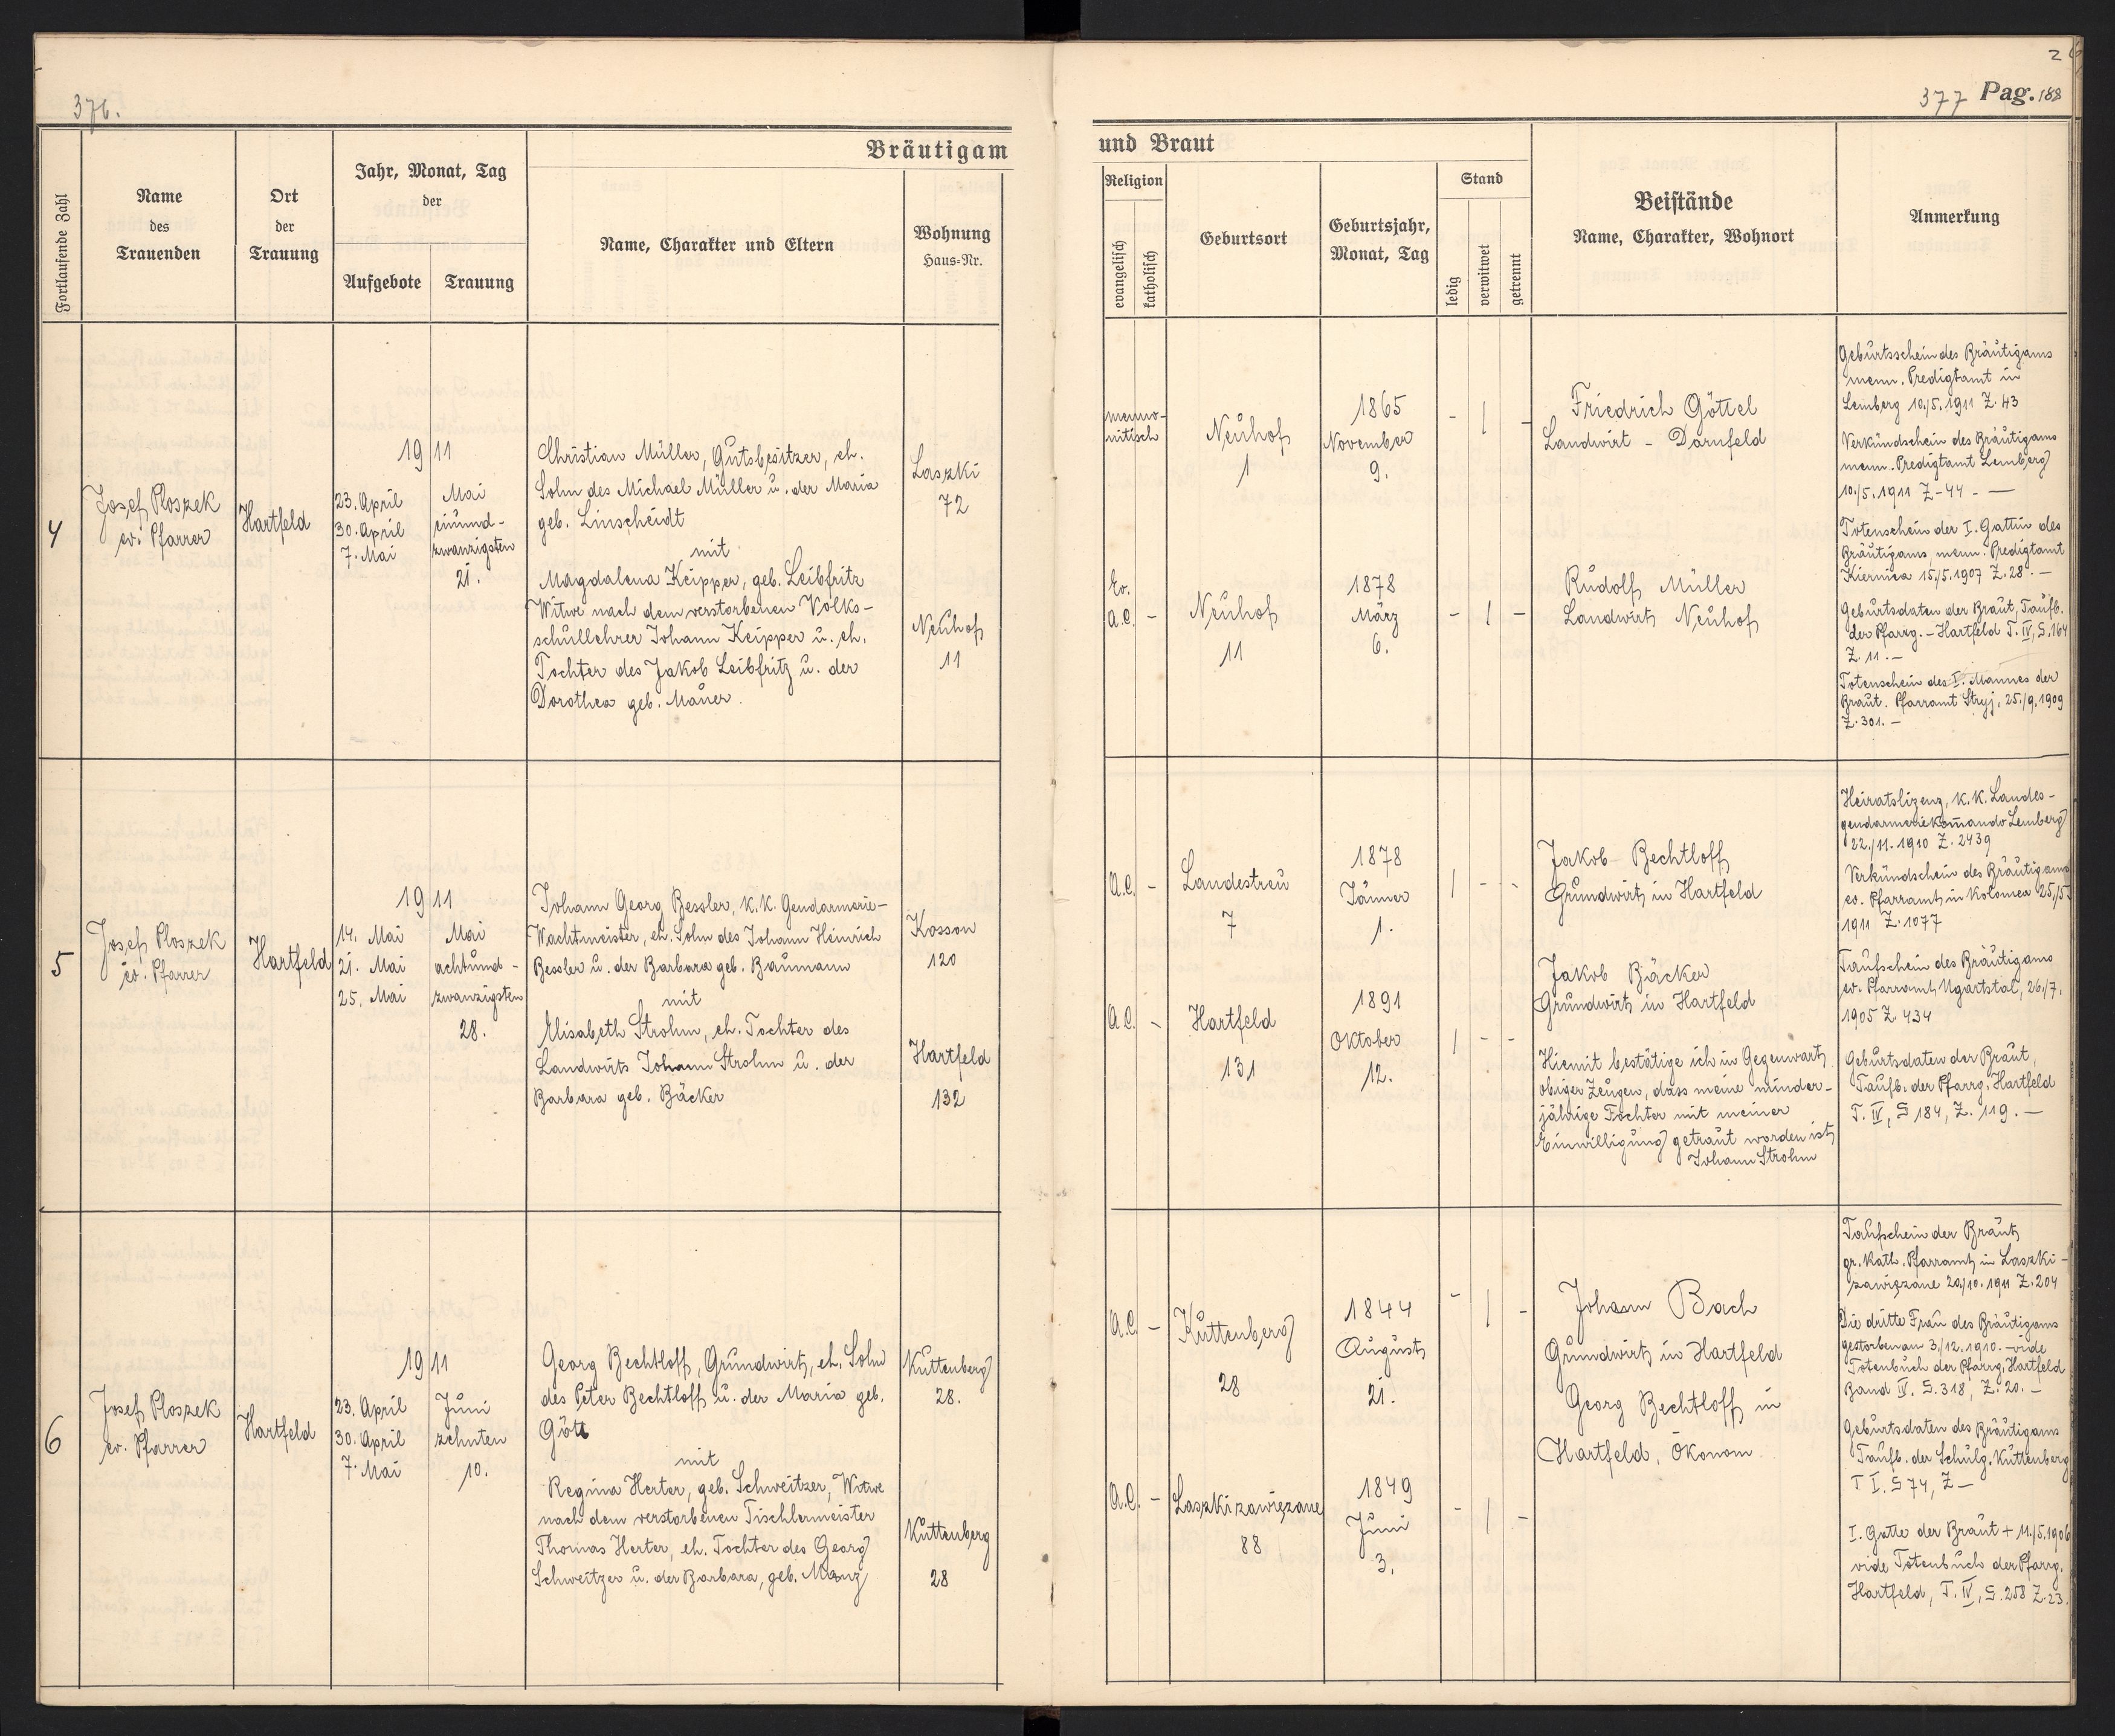 376.
2
377 Pag. 188
Bräutigam
und Braut
Fortlaufende Zahl
Name
des
Trauenden
Ort
der
Trauung
Jahr, Monat, Tag
der
Aufgebote
Trauung
Name, Charakter und Eltern
Wohnung
Haus-Nr.
Religion
evangelisch
katholisch
Geburtsort
Geburtsjahr,
Monat, Tag
Stand
ledig
verwitwet
getrennt
Beistände
Name, Charakter, Wohnort
Anmerkung
4
Josef Ploszek
ev. Pfarrer
Hartfeld
1911
23. April
30. April
7. Mai
Mai
einund-
zwanzigsten
21.
Christian Müller, Gutsbesitzer, eh.
Sohn des Michael Müller u. der Maria
geb. Linscheidt
mit
Magdalena Keipper, geb. Leibfritz
Witwe nach dem verstorbenen Volks-
schullehrer Johann Keipper u. eh.
Tochter des Jakob Leibfritz u. der
Dorothea geb. Mauer.
Laszki
72
Neuhof
11
menno-
nitisch
Neuhof
1
1865
November
9.
- | -
Friedrich Göttel
Landwirt - Dornfeld
Ev.
A.C. -
Neuhof
11
1878
März
6.
- | -
Rudolf Müller
Landwirt, Neuhof
Geburtsschein des Bräutigams
menn. Predigtamt in
Lemberg 10./5. 1911 Z. 43
Verkündschein des Bräutigams
menn. Predigtamt Lemberg
10./5. 1911 Z-44 - —
Totenschein der I. Gattin des
Bräutigams, menn. Predigtamt
Kiernica 15./5. 1907 Z. 28. —
Geburtsdaten der Braut, Taufb.
der Pfarrg. - Hartfeld T. IV, S. 164
Z. 11. —
Totenschein des I. Mannes der
Braut. Pfarramt Stryj, 25./9. 1909
Z. 301. —
5
Josef Ploszek
ev. Pfarrer
Hartfeld
1911
14. Mai
21. Mai
25. Mai
Mai
achtund-
zwanzigsten
28.
Johann Georg Bessler, K.K. Gendarmerie-
Wachtmeister, eh. Sohn des Johann Heinrich
Bessler u. der Barbara geb. Baumann
mit
Elisabeth Strohm, eh. Tochter des
Landwirts Johann Strohm u. der
Barbara geb. Bäcker
Kossow
120
Hartfeld
132
A.C. -
Landestreu
7
1878
Jänner
1.
| - -
Jakob Bechtloff
Grundwirt in Hartfeld
A.C. -
Hartfeld
131
1891
Oktober
12.
| - -
Jakob Bäcker
Grundwirt in Hartfeld
Hiemit bestätige ich in Gegenwart
obiger Zeugen, dass meine minder-
jährige Tochter mit meiner
Einwilligung getraut worden ist,
Johann Strohm
Heiratslizenz, K.K. Landes-
gendarmeriekom̄ando Lemberg
22./11. 1910 Z. 2439
Verkündschein des Bräutigams
ev. Pfarramt in Kolomea 25./5.
1911 Z. 1077
Taufschein des Bräutigams
ev. Pfarramt Ugartstal, 26./7.
1905 Z. 434
Geburtsdaten der Braut,
Taufb. der Pfarrg. Hartfeld
T. IV, S 184, Z. 119. —
6
Josef Ploszek
ev. Pfarrer
Hartfeld
1911
23. April
30. April
7. Mai
Juni
zehnten
10.
Georg Bechtloff, Grundwirt, eh. Sohn
des Peter Bechtloff u. der Maria geb.
Gött
mit
Regina Herter, geb. Schweitzer, Witwe
nach dem verstorbenen Tischlermeister
Thomas Herter, eh. Tochter des Georg
Schweitzer u. der Barbara, geb. Manz
Kuttenberg
28.
Kuttenberg
28
A.C. -
Kuttenberg
28
1844
August
21.
- | -
Johann Bach
Grundwirt in Hartfeld
Georg Bechtloff, in
Hartfeld, Ökonom
A.C. -
Laszki zawięzane
88
1849
Juni
3.
- | -
Taufschein der Braut,
gr. kath. Pfarramt, in Laszki-
zawięzane 20./10. 1911 Z. 204
Die dritte Frau des Bräutigams
gestorben am 3./12. 1910. - vide
Totenbuch der Pfarrg. Hartfeld
Band IV. S. 318, Z. 20. —
Geburtsdaten des Bräutigams
Taufb. der Schulg. Kuttenberg
T I. S 74, Z —
I. Gatte der Braut + 11./5. 1906
vide Totenbuch der Pfarrg.
Hartfeld, T. IV, S. 258 Z. 23.